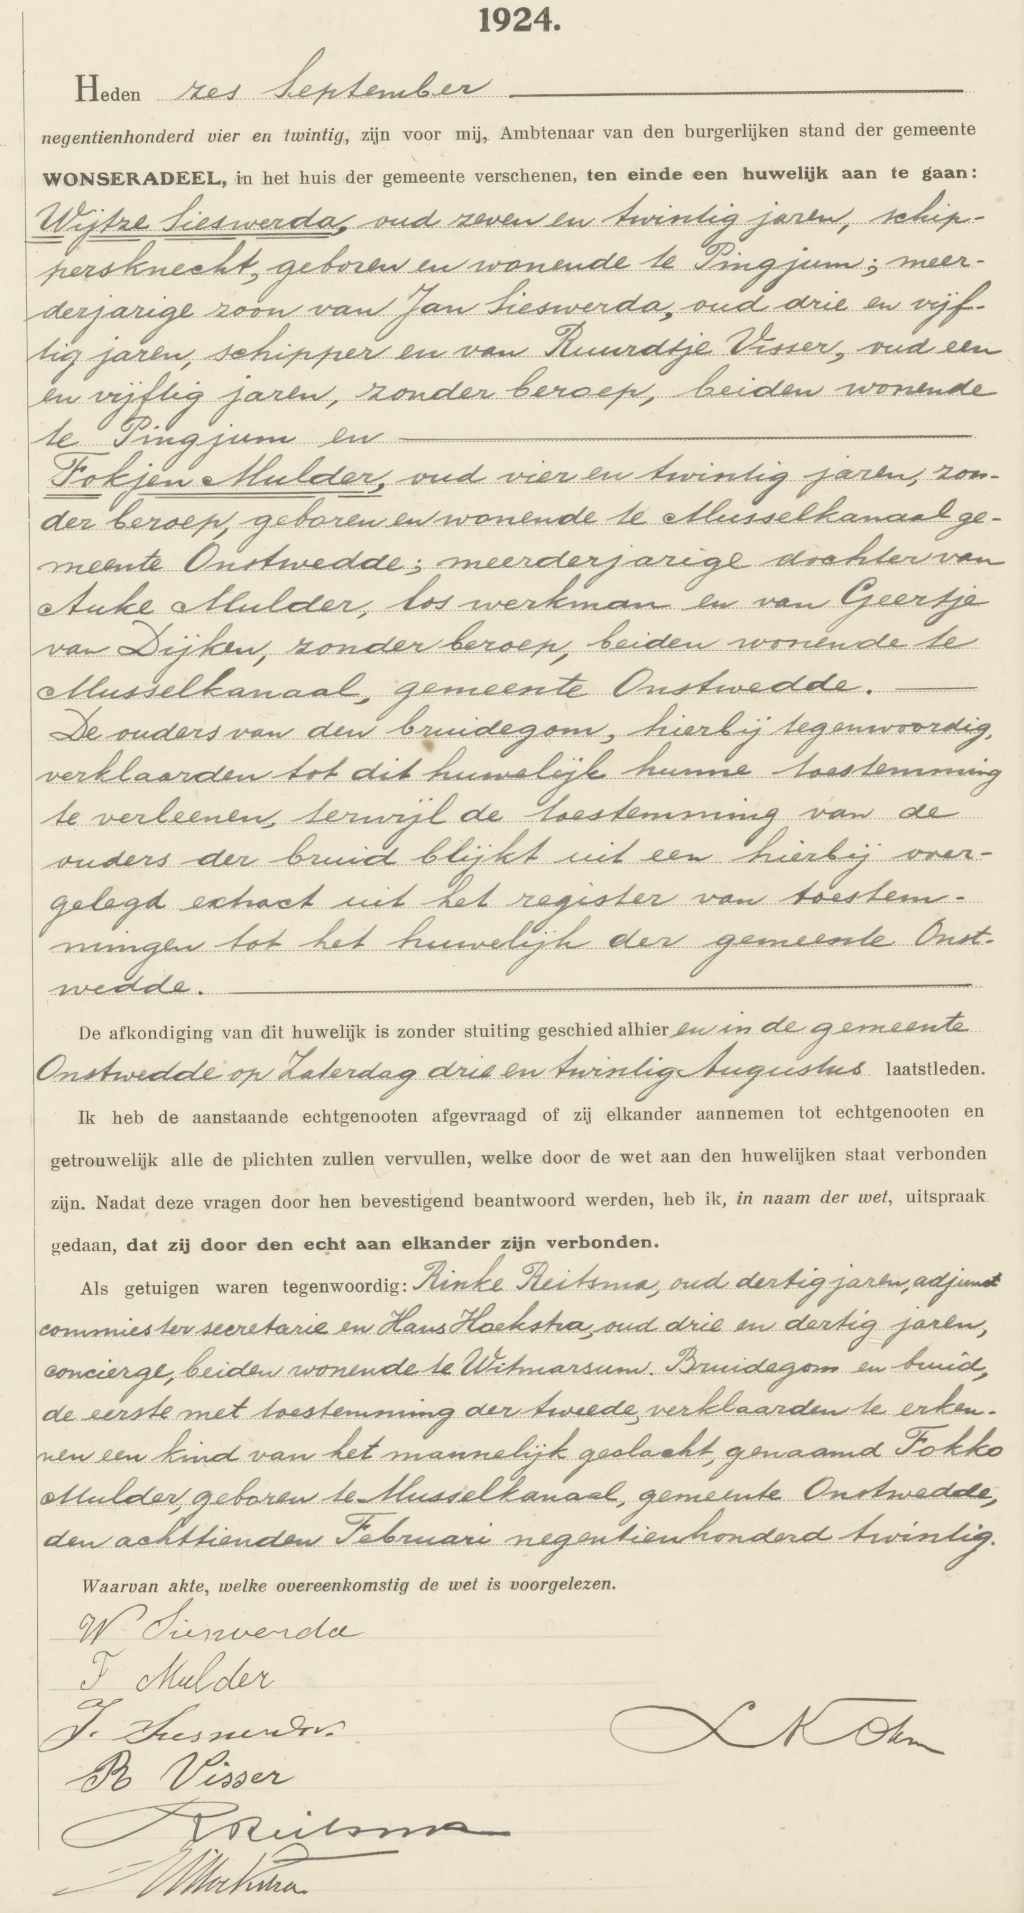 1924.
Heden zes September
negentienhonderd vier en twintig, zijn voor mij, Ambtenaar van den burgerlijken stand der gemeente
WONSERADEEL, in het huis der gemeente verschenen, ten einde een huwelijk aan te gaan:
Wijtze Sieswerda, oud zeven en twintig jaren, schip-
persknecht, geboren en wonende te Pingjum; meer-
derjarige zoon van Jan Sieswerda, oud drie en vijf-
tig jaren, schipper en van Ruurdtje Visser, oud een
en vijftig jaren, zonder beroep, beiden wonende
te Pingjum en
Fokjen Mulder, oud vier en twintig jaren, zon-
der beroep, geboren en wonende te Musselkanaal ge-
meente Onstwedde; meerderjarige dochter van
Auke Mulder, los werkman en van Geertje
van Dijken, zonder beroep, beiden wonende te
Musselkanaal, gemeente Onstwedde.
De ouders van den bruidegom, hierbij tegenwoordig,
verklaarden tot dit huwelijk hunne toestemming
te verleenen, terwijl de toestemming van de
ouders der bruid blijkt uit een hierbij over-
gelegd extract uit het register van toestem-
mingen tot het huwelijk der gemeente Onst-
wedde.
De afkondiging van dit huwelijk is zonder stuiting geschied alhier en in de gemeente
Onstwedde op Zaterdag drie en twintig Augustus laatstleden.
Ik heb de aanstaande echtgenooten afgevraagd of zij elkander aannemen tot echtgenooten en
getrouwelijk alle de plichten zullen vervullen, welke door de wet aan den huwelijken staat verbonden
zijn. Nadat deze vragen door hen bevestigend beantwoord werden, heb ik, in naam der wet, uitspraak
gedaan, dat zij door den echt aan elkander zijn verbonden.
Als getuigen waren tegenwoordig: Rinke Reitsma, oud dertig jaren, adjunct
commies ter secretarie en Hans Hoekstra, oud drie en dertig jaren,
concierge, beiden wonende te Witmarsum. Bruidegom en bruid,
de eerste met toestemming der tweede, verklaarden te erken-
nen een kind van het mannelijk geslacht, genaamd Fokko
Mulder, geboren te Musselkanaal, gemeente Onstwedde,
den achttienden Februari negentienhonderd twintig.
Waarvan akte, welke overeenkomstig de wet is voorgelezen.
W Sieswerda
F Mulder
J. Sieswerda.
R Visser
R Reitsma
H Hoekstra.